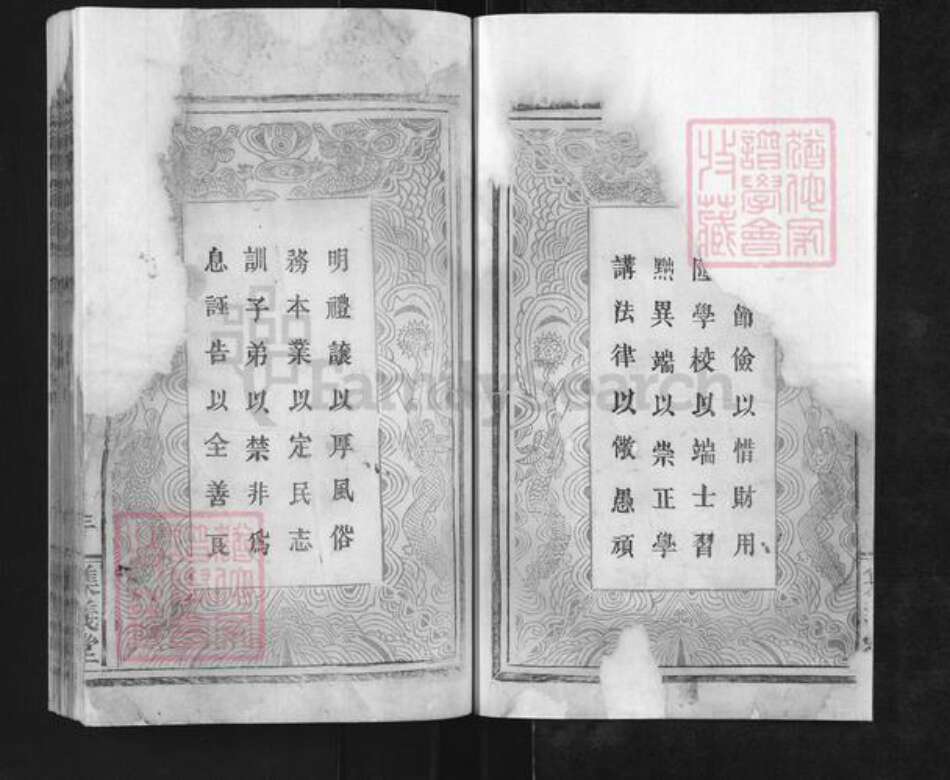 節儉以惜財用
隆學校以端士習
黜異端以崇正學
講法律以儆愚頑
明禮讓以厚風俗
務本業以定民志
訓子弟以禁非爲
息誣告以全善良
集義堂
譜學會
收藏
FamilySearch